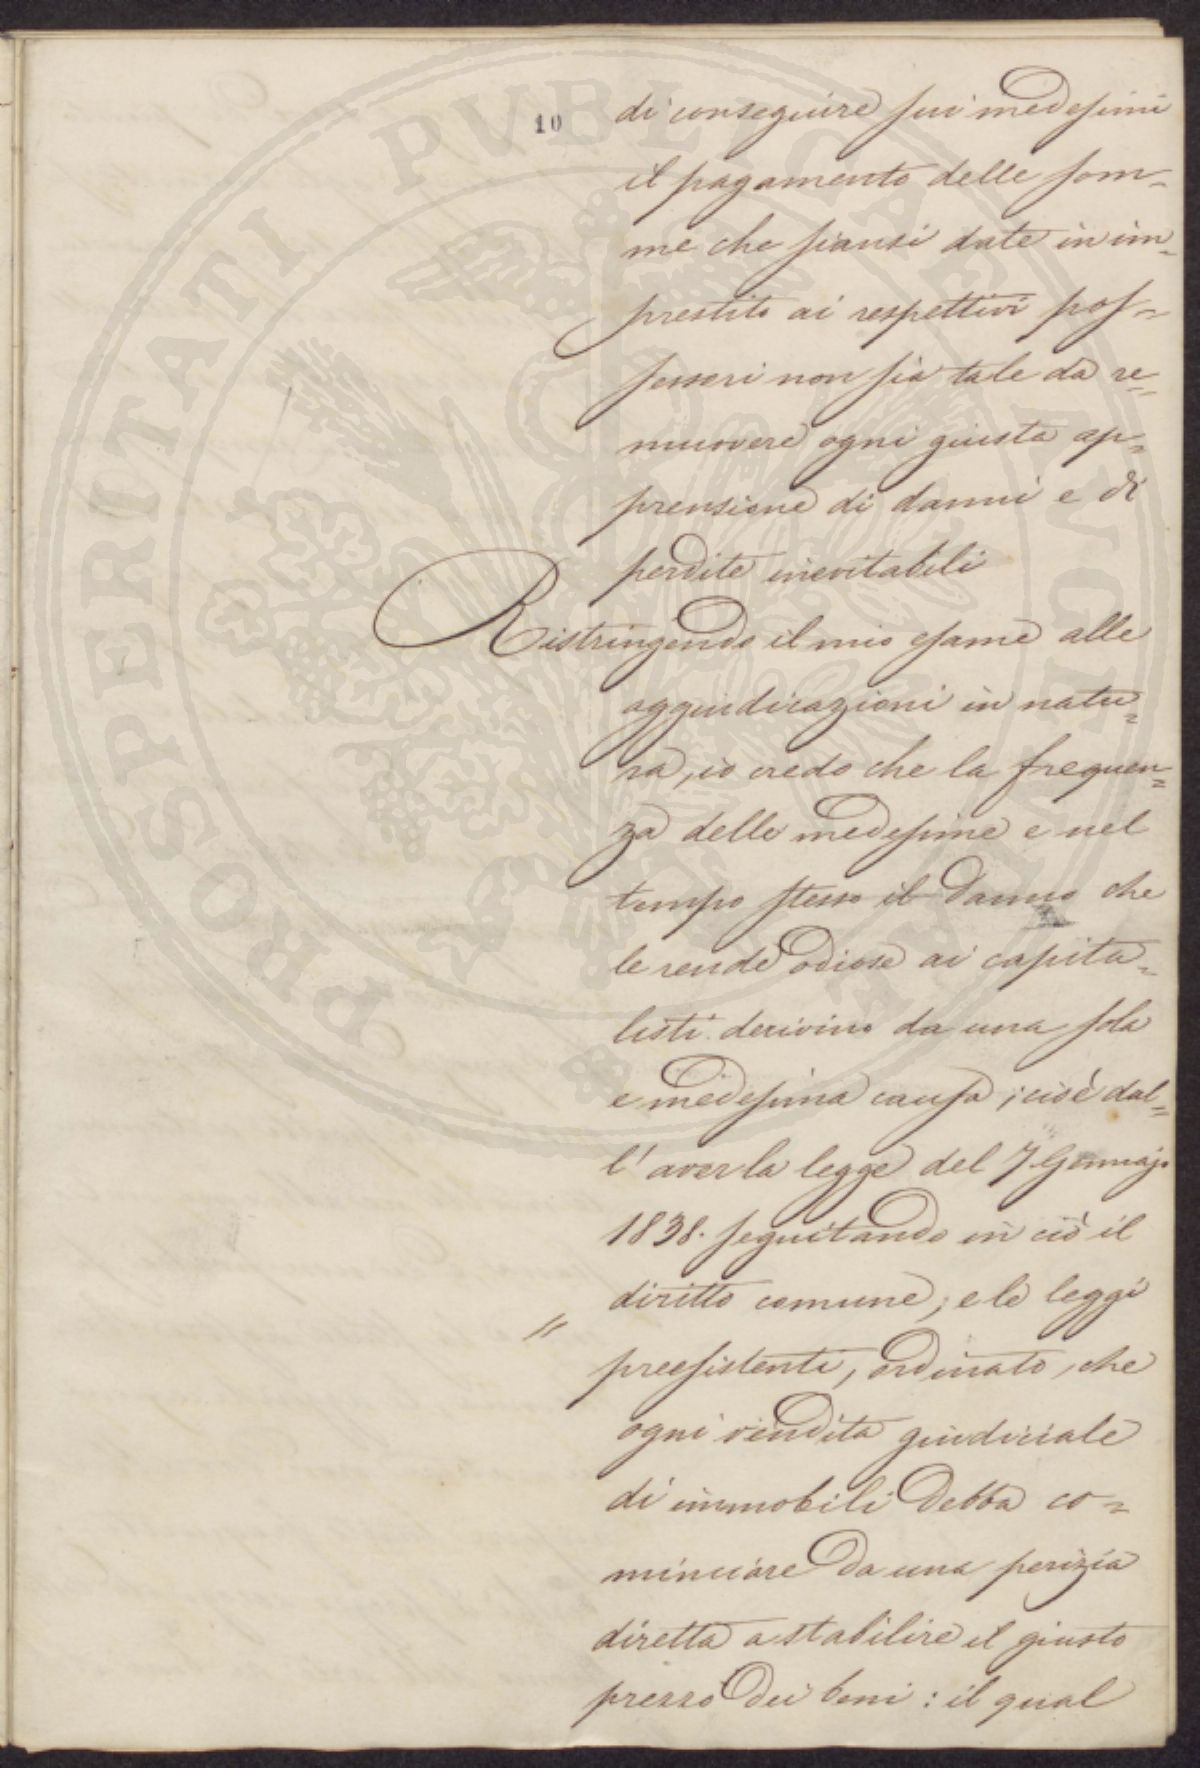 10
di conseguire sui medesimi
il pagamento delle som=
me che siansi date in im=
prestito ai respettivi pos=
sessori non sia tale da re=
muovere ogni giusta ap=
prensione di danni e di
perdite inevitabili
Ristringendo il mio esame alle
aggiudicazioni in natu=
ra, io credo che la frequen=
za delle medesime e nel
tempo stesso il danno che
le rende odiose ai capita=
listi derivino da una sola
e medesima causa; cioè dal=
l'aver la legge del 7 Gennajo
1838. seguitando in ciò il
diritto comune, e le leggi
preesistenti, ordinato, che
ogni vendita giudiciale
di immobili debba co=
minciare da una perizia
diretta a stabilire il giusto
prezzo dei beni: il qual
PROSPERITATI PVBLICAE AVGENDAE